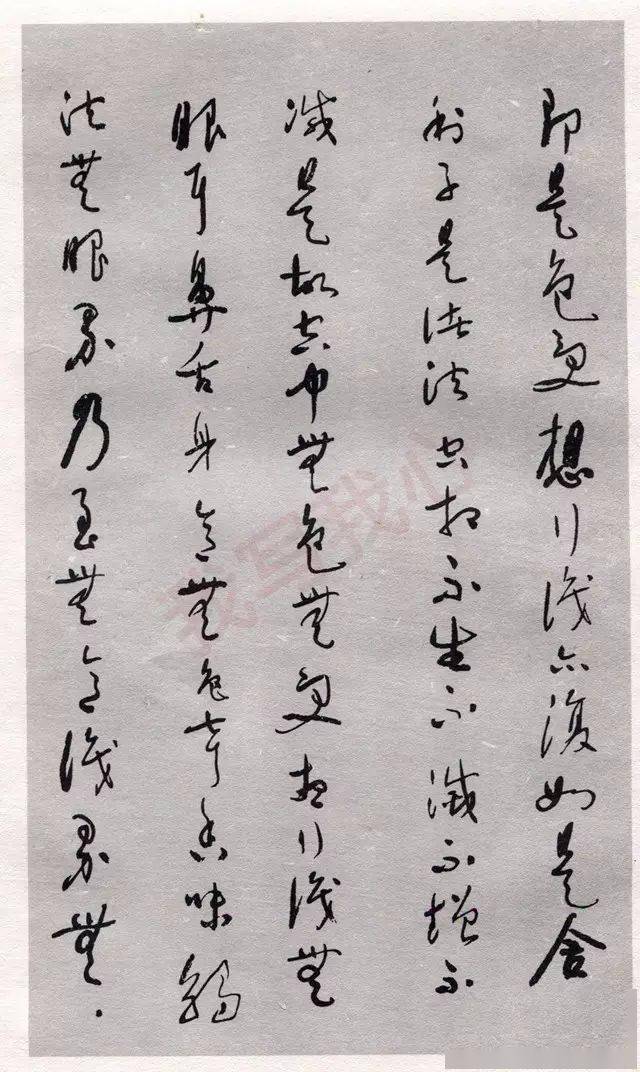 即是色受想行識亦復如是舍
利子是諸法空相不生不滅不增不
減是故空中無色無受想行識無
眼耳鼻舌身意無色聲香味觸
法無眼界乃至無意識界無
我写我心